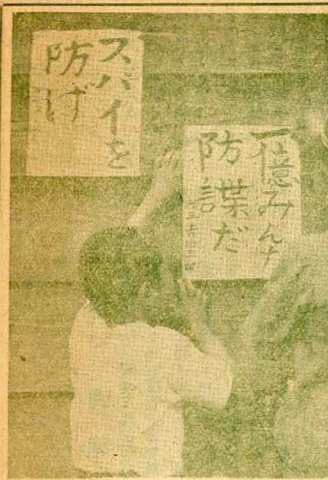 スパイを
防げ
一億みんな
防諜だ